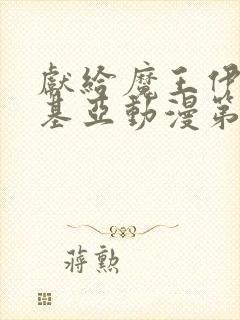 獻給魔王伊
基亞動漫第
蔣勲